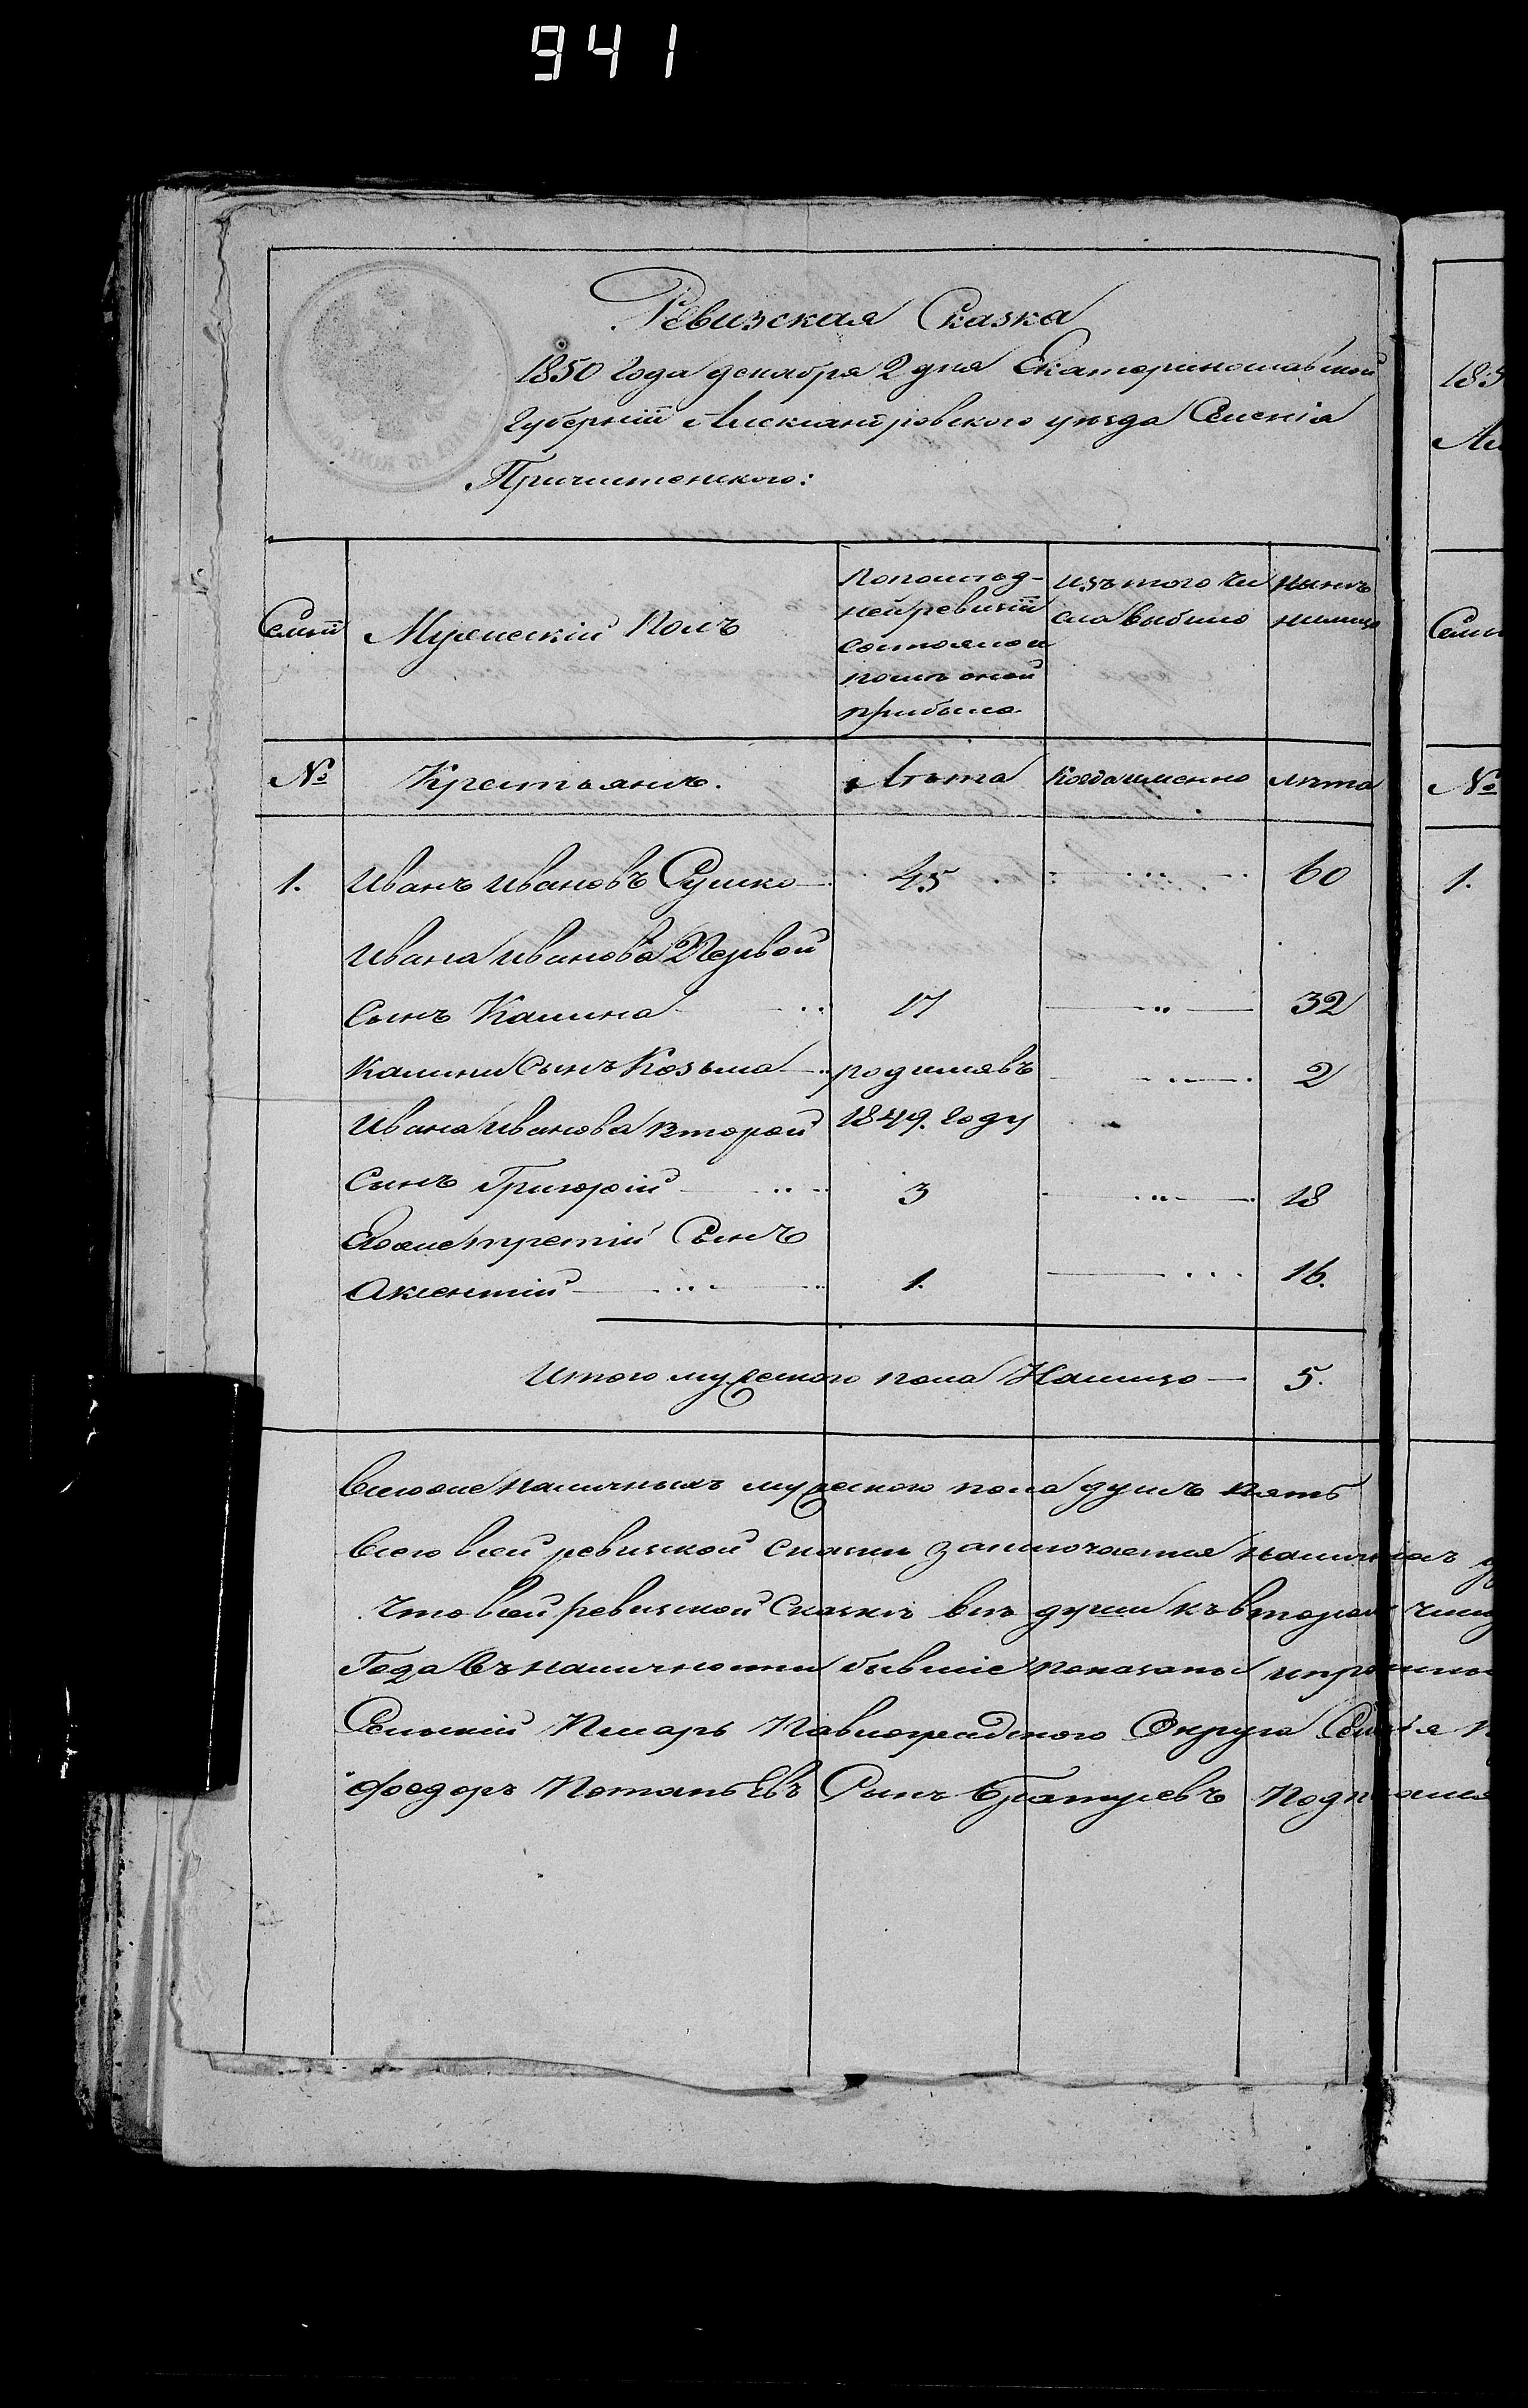 941
Ревизская Сказка
1850 Года декабря 2 дня Екатеринославской
Губернии Александровского уезда Селенія
Причистенского:
Семьи
Мужескій Полъ
По послед-
ней ревизіи
состояло и
после оной
прибыло
Изъ того чи
сла выбыло
Ныне
на лицо
№
Крестьянъ.
Лета
Когда именно
лета
1. Иванъ Ивановъ Сушко 45 60
Ивана Иванова Первой
Сынъ Калина 17 32
Калины Сынъ Козьма родился въ 2
Ивана Иванова второй 1849. году
Сынъ Григорій 3 18
Его же третій Сынъ
Аксентій 1. 16.
Итого мужеского пола На лицо 5.
Всего же наличныхъ мужеского пола душъ пять
Всего в сей ревизской сказки заключается наличныхъ
Что в сей ревизской Сказке все души къ второму
Года въ наличности бывшіе показаны и
Сельскій Писарь Павлоградского Округа
Федоръ Потапьевъ Сынъ
185
Семьи
№
1.